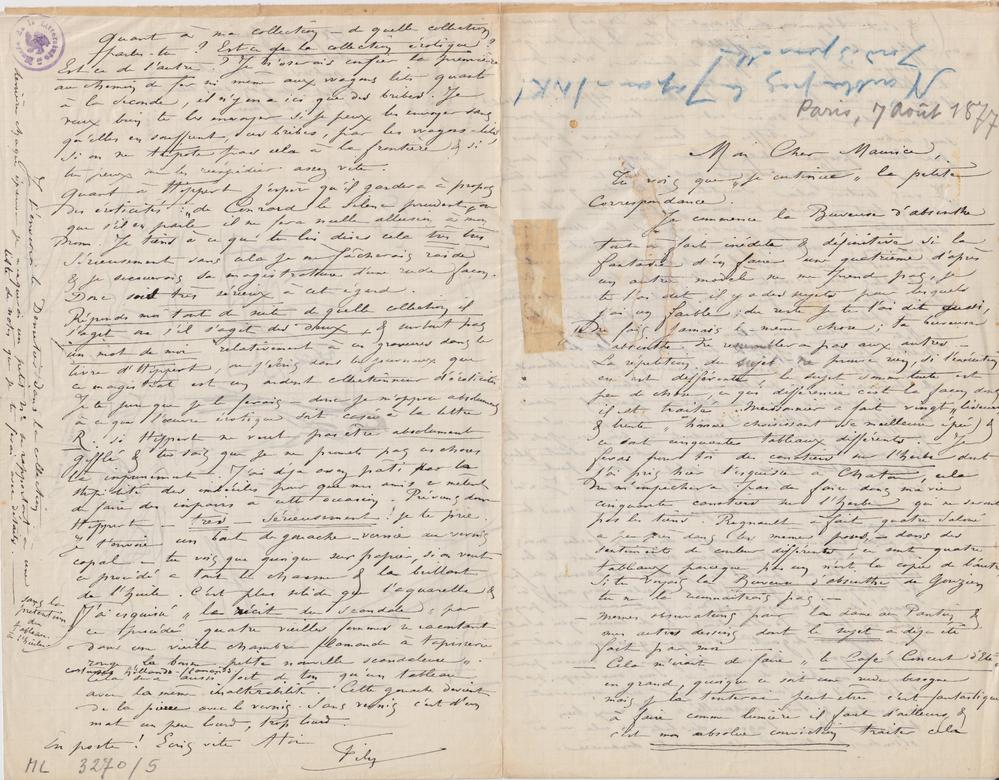 Paris, 7 Août 1877
Mon Cher Maurice,
Tu vois que "je cultive" la petite
Correspondance.
Je commence la Buveuse d'absinthe
tout à fait inédite & définitive si la
fantaisie d'en faire une quatrième d'après
un autre modèle ne me prend pas, je
te l'ai dit, il y a des sujets pour lesquels
j'ai un faible; du reste je te l'ai dit aussi,
Je ne fais jamais la même chose; ta buveuse
d'absinthe ne ressemblera pas aux autres –
La répétition du sujet ne prouve rien si l'exécution
en est différente. Le sujet somme toute est
peu de chose, ce qui différencie c'est la façon dont
il est traité. Meissonier a fait vingt "liseurs"
& trente "homme choisissant sa meilleure épée" &
ce sont cinquante tableaux différents. Je
ferai pour toi des courtoises sur l'herbe dont
j'ai pris hier l'esquisse à Chatou, cela
ne m'empêchera pas de faire dans ma vie
cinquante sur l'herbe qui ne seront
pas les tiens. Regnault a fait quatre Salomé
à peu près dans les mêmes poses, – dans des
sentiments de couleur différents, ce sont quatre
tableaux parceque pas un n'est la copie de l'autre
Si tu voyais la Buveuse d'absinthe de Gouzien
tu ne le reconnaîtrais pas –
– Mêmes observations pour la dame au Pantin, &
mes autres dessins dont le sujet a déjà été
fait par moi –
– Cela m'irait de faire "le Café Concert d'Eté"
en grand, quoique ce soit une rude besogne
mais je la tenterais peut être c'est fantastique
à faire comme lumière il faut d'ailleurs, &
c'est mon absolue conviction traité cela
Quant à ma collection – de quelle collection
parles-tu? Est-ce de la collection érotique?
Est-ce de l'autre? Je n'oserais confier la première
au chemin de fer ni même aux wagons lits quant
à la seconde, il n'y en a ici que des bribes. Je
veux bien te les envoyer si je peux les envoyer sans
qu'elles en souffrent, ces bribes, par les wagons-lits
si on ne tripote pas cela à la frontière & si
tu peux me les réexpédier assez vite.
Quant à Hippert j'espère qu'il gardera à propos
des éroticités: "de Conrard le silence prudent", ou
que s'il en parle il ne fera nulle allusion à mon
nom. Je tiens à ce que tu lui dises cela très très
sérieusement sans cela je me fâcherais raide
& je secouerais sa magistrature d'une rude façon.
Donc sois très sérieux à cet égard.
Réponds moi tout de suite de quelle collection il
s'agit ou s'il s'agit des deux, & surtout pas
un mot de moi relativement à ces gravures dans le
livre d'Hippert, ou j'écris dans les journaux que
ce magistrat est un ardent collectionneur d'éroticités
Je te jure que je le ferais – donc je m'oppose absolument
à ce que l'œuvre érotique soit casée à la lettre
R. si Hippert ne veut pas être absolument
gifflé & tu sais que je ne promets pas ces choses
là vainement – J'ai déjà assez pâti par la
stupidité des imbéciles pour que mes amis se mêlent
de faire des impairs à cette occasion. Préviens donc
Hippert très – sérieusement! je te prie.
Je t'envoie un bout de gouache vernie au vernis
copal – tu vois que quoique sur papier, si on veut
ce procédé a tout le charme & le brillant
de l'huile. C'est plus solide que l'aquarelle &
J'ai esquissé "le récit du scandale" par
ce procédé quatre vieilles femmes se racontant
dans une vieille chambre flamande à tapisserie
rouge "la bonne petite nouvelle scandaleuse".
costumes hollando-flamands
cela sera aussi fort de ton qu'un tableau
avec la même inaltérabilité. Cette gouache devient
de la pierre avec le vernis. Sans vernis c'est d'un
mat un peu lourd, trop lourd.
En poste! Ecris vite A toi
Fély
sans la
prétention
du
tableau
à l'huile
J'enverrai le Dimanche dans la collection
liste de notes que je te ferai avoir
ML 3270/5